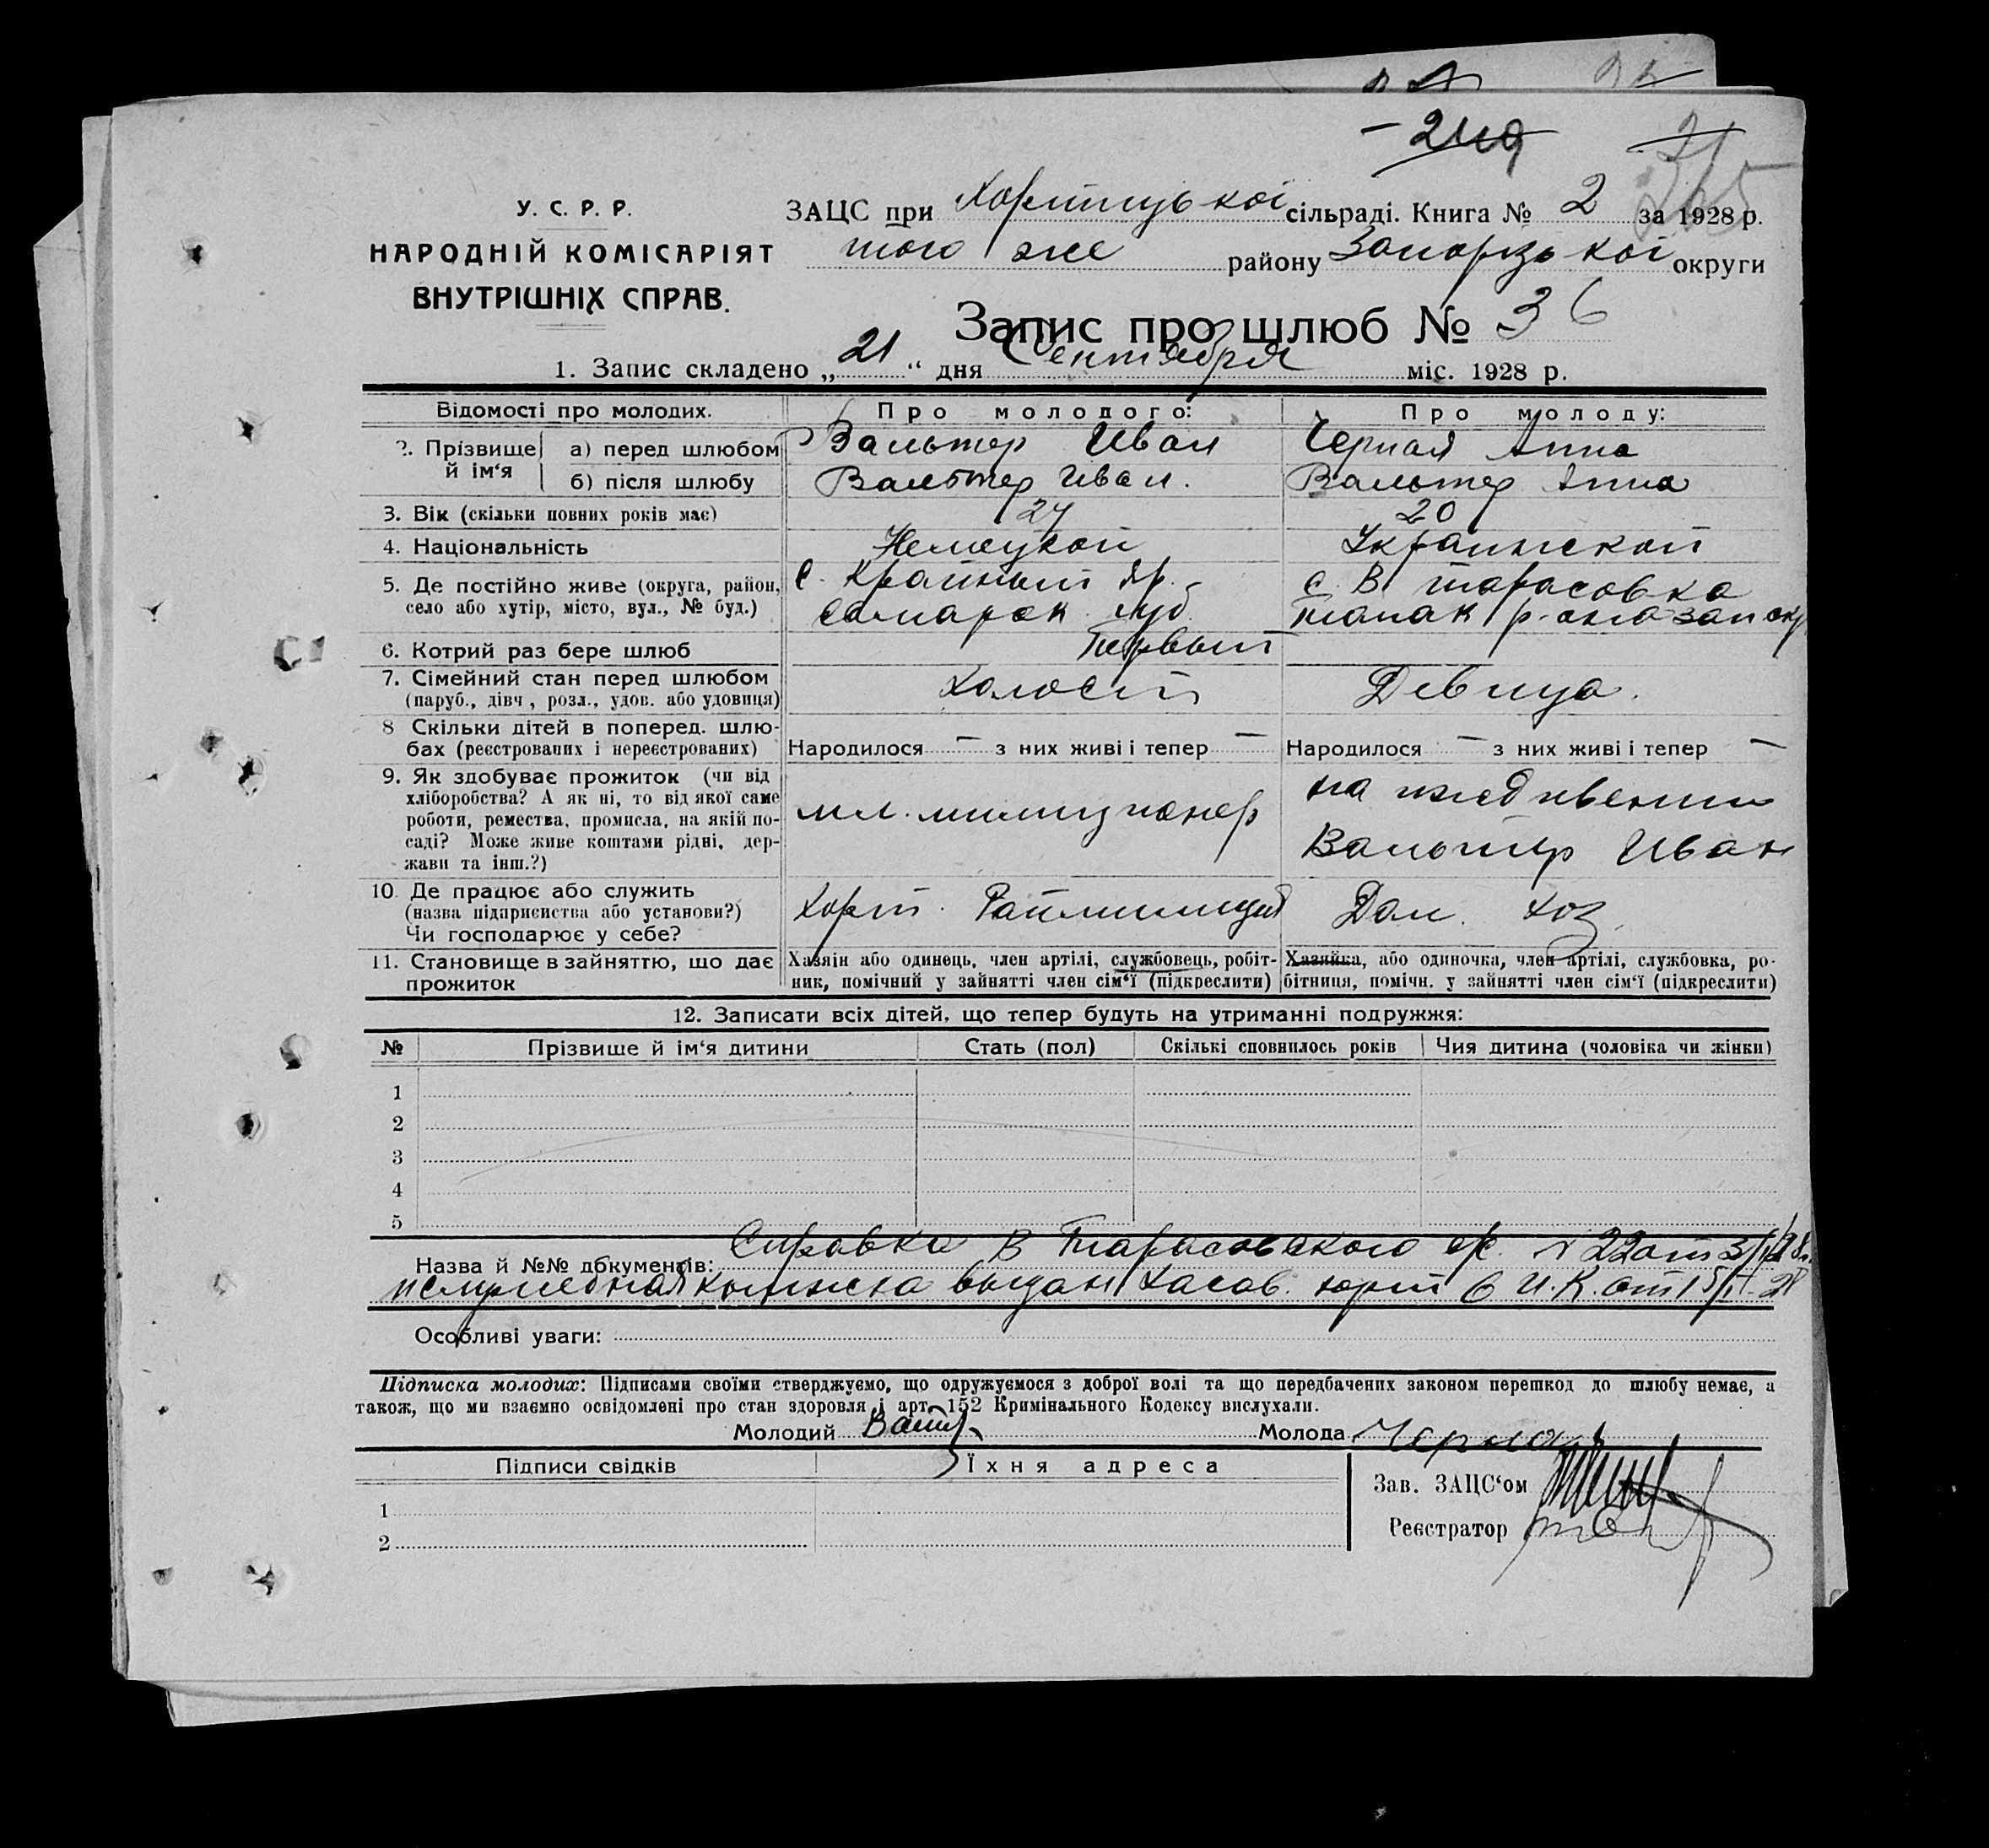 249
21
265
У. С. Р. Р.
НАРОДНІЙ КОМІСАРІЯТ
ВНУТРІШНІХ СПРАВ.
ЗАЦС при Хортицької сільраді. Книга № 2 за 1928 р.
того же району Запорізької округи
Запис про шлюб № 36
1. Запис складено „21“ дня Сентября міс. 1928 р.
Відомості про молодих. Про молодого: Про молоду:
2. Прізвище й ім‘я а) перед шлюбом Вальтер Иван Черная Анна
б) після шлюбу Вальтер Иван. Вальтер Анна
3. Вік (скільки повних років має) 24 20
4. Національність Немецкой Украинской
5. Де постійно живе (округа, район, село або хутір, місто, вул., № буд.) с. Крайный Яр. Самарск. губ с. В Тарасовка
6. Котрий раз бере шлюб Первый
7. Сімейний стан перед шлюбом Холост Девица.
(паруб., дівч, розл., удов. або удовиця)
8 Скільки дітей в поперед. шлю-
бах (реєстрованих і нереєстрованих) Народилося — з них живі і тепер — Народилося — з них живі і тепер —
9. Як здобуває прожиток (чи від
хліборобства? А як ні, то від якої саме
роботи, ремества, промисла, на якій по-
саді? Може живе коштами рідні, дер-
жави та інш.?)
мл. милиционер
на иждивении
Вальтер Иван
10. Де працює або служить
(назва підприємства або установи?)
Чи господарює у себе?
Хорт. Раймилиция Дом. хоз
11. Становище в зайняттю, що дає
прожиток
Хазяїн або одинець, член артілі, службовець, робіт-
ник, помічний у зайнятті член сім‘ї (підкреслити)
Хазяйка, або одиночка, член артілі, службовка, ро-
бітниця, помічн. у зайнятті член сім‘ї (підкреслити)
12. Записати всіх дітей, що тепер будуть на утриманні подружжя:
№ Прізвище й ім‘я дитини Стать (пол) Скількі сповнилось років Чия дитина (чоловіка чи жінки)
1
2
3
4
5
Назва й №№ документів: Справка В Тарасовского с/с. № 22 от
книжка выдан Хасав. юрт И.К. от
Особливі уваги:
Підписка молодих: Підписами своїми стверджуємо, що одружуємося з доброї волі та що передбачених законом перешкод до шлюбу немає, а
також, що ми взаємно освідомлені про стан здоровля і арт. 152 Кримінального Кодексу вислухали.
Молодий Молода Черная
Підписи свідків Їхня адреса
1
2
Зав. ЗАЦС‘ом
Реєстратор